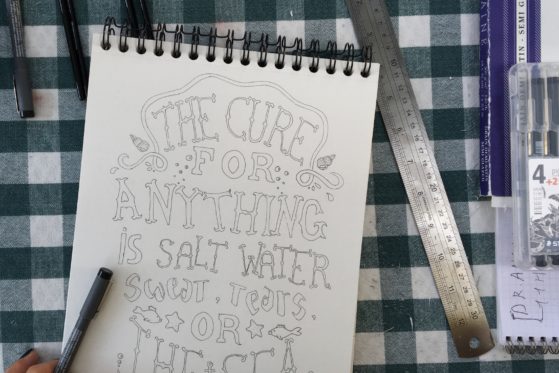 THE CURE
FOR
ANYTHING
is SALT WATER
Sweat, Tears,
OR
THE SEA
4
DRA